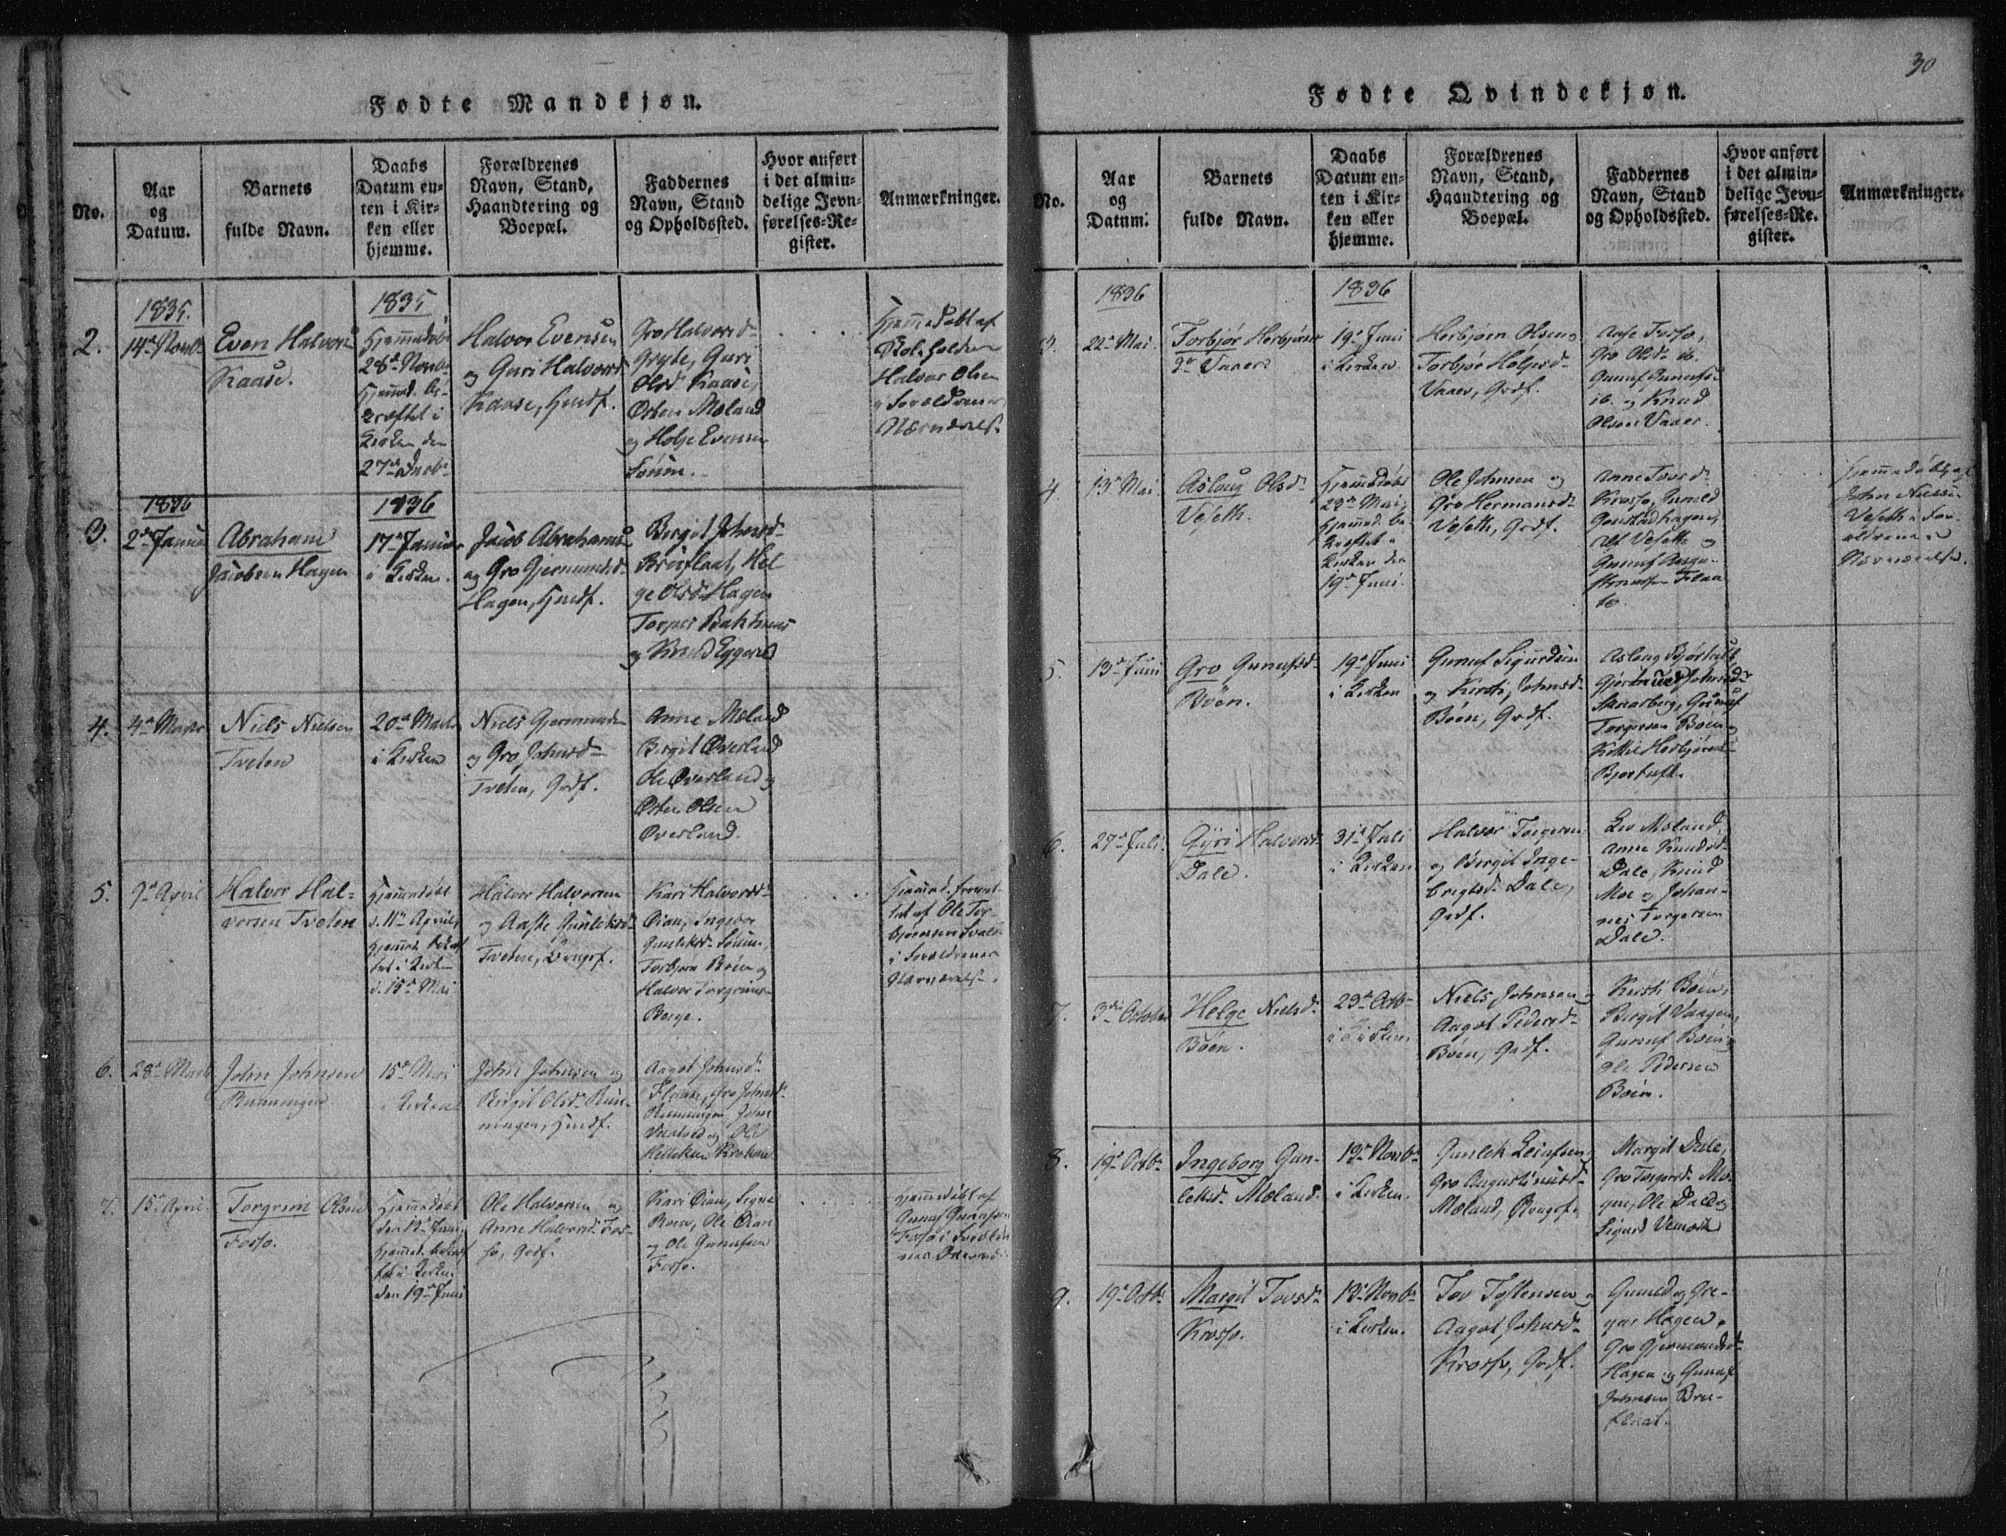 30
Fødte Mandkjøn.
No.
Aar
og
Datum.
Barnets
fulde Navn.
Daabs
Datum en-
ten i Kir-
ken eller
hjemme.
Forældrenes
Navn, Stand,
Haandtering og
Boepæl.
Faddernes
Navn, Stand
og Opholdssted.
Hvor anført
i det almin-
delige Jevn-
førelses-Re-
gister.
Anmærkninger.
2.
1835.
14de Novbr
Even Halvors
Kaase.
1835
Hjemmedøbt
28de Novbr
Hjemmed. be-
kræftet i
Kirken den
27de Decbr
Halvor Evensen
og Guri Halvorsd.
Kaase, Husf.
Gro Halvorsd.
Gryte, Guri
Olsd. Kaase,
Østen Mæland
og Holje Evensen
Hjemmedøbt af
Halvor Olsen
i Forældrenes
Nærværelse.
3.
1836
2den Januar
Abraham
Jacobsen Hagen
1836
17de Januar
i Kirken.
Jacob Abrahams
og Gro Gjermundsd.
Hagen, Husf.
Birgit Johnsd.
Brusflaat, Hel
ge Olsd. Hagen
og Knud Eggerud
4.
4de Marts
Niels Nielsen
Tveten
20de Marts
i Kirken
Niels Gjermundsen
og Gro Johnsd.
Tveten, Gvdf.
Anne Mæland
Birgit Overland
Ole Overland og
Østen Olsen
Overland.
5.
9de April
Halvor Hal-
vorsen Tveten
Hjemmedøbt
d. 11te April,
Hjemmed. bekræf
tet i Kirken
d. 15de Mai
Halvor Halvorsen
og Aaste Gunleiksd.
Tveten,
Kari Halvorsd.
Øian, Ingebor
Gunleiksd.
Torbjørn Bøen og
Halvor Torgrims.
Berge.
Hjemmed. forret-
tet af Ole Tor-
bjørnsen
i Forældrenes
Nærværelse.
6.
28de Marts
John Johnsen
Rinningen
15de Mai
i Kirken
John Johnsen og
Birgit Olsd. Rin-
ningen, Husf.
Aagot Johnsd.
Flaate, Gro Johnsd.
Rinningen, John
og Ole
7.
15de April
Torgrim Olsen
Forsø.
Hjemmedøbt
den 12te Juni,
Hjemmed. bekræf
tet i Kirken
den 19de Juni
Ole Halvorsen og
Anne Halvorsd. For-
sø, Gvdf.
Kari Øian, Signe
Ole Øian
og Ole Gunufsen
Forsø.
Hjemmedøbt af
Gunuf Gunufsen
Forsø i Foræld
Fødte Qvindekjøn.
No.
Aar
og
Datum.
Barnets
fulde Navn.
Daabs
Datum en-
ten i Kir-
ken eller
hjemme.
Forældrenes
Navn, Stand,
Haandtering og
Boepæl.
Faddernes
Navn, Stand
og Opholdssted.
Hvor anført
i det almin-
delige Jevn-
førelses-Re-
gister.
Anmærkninger.
3.
1836
22de Mai
Torbjør Herbjørns
dr Vaaer
1836
19de Juni
i Kirken
Herbjørn Olsen og
Torbjør Holjesd.
Vaaer, Gvdf.
Aase Forsø,
Gro Olsd. ib.
Gunuf Gunufs.
ib. og Knud
Olsen Vaaer.
4.
13de Mai
Aslaug Olsd.
Veseth.
Hjemmedøbt
23de Mai,
Hjemmed. be-
kræftet i
Kirken den
19de Juni
Ole Johnsen og
Gro Hermansd.
Veseth, Gvdf.
Anne Tovsd.
Krossø, Gunild
Alf Veseth og
Gunuf
Hjemmedøbt af
John Nielsen
Veseth i For-
ældrenes
Nærværelse.
5.
13de Juni
Gro Gunufsd.
Bøen.
19de Juni
i Kirken
Gunuf Sigurdsen
og Kirsti Johnsd.
Bøen, Gvdf.
Aslaug Bjørtuft,
Gjermund Johnsd.
Gunuf
Torgersen Bøen og
Kittil Herbjørnsen
Bjortuft.
6.
27de Juli
Gyri Halvorsd.
Dale.
31te Juli
i Kirken
Halvor Torgersen
og Birgit Inge-
brigtsd. Dale,
Gvdf.
Liv Mæland,
Anne Knudsd.
Dale, Knud
Moe og Johan-
nes Torgersen
Dale.
7.
3die October
Helge Nielsd.
Bøen.
23de Octbr
i Kirken.
Niels Johnsen og
Aagot Pedersd.
Bøen, Gvdf.
Kirsti Bøen,
Birgit Vaagen,
Gunuf Bøen og
Ole Pedersen
Bøen.
8.
19de Octbr
Ingeborg Gun-
leiksd. Mæland.
13de Novbr
i Kirken.
Gunleik Leiufsen,
Gro Augustinusd.
Mæland,
Margit Dale,
Gro Torgersd. Mo-
gen, Ole Dale og
Sigurd
9.
19de Octbr
Margit Tovsd.
Krossø.
13de Novbr
i Kirken.
Tov Tostensen og
Aagot Johnsd.
Krossø, Gvdf.
Gunild og Gre-
gar Hagen,
Gro Gjermundsd.
Hagen og Gunuf
Johnsen Brus-
flaat.